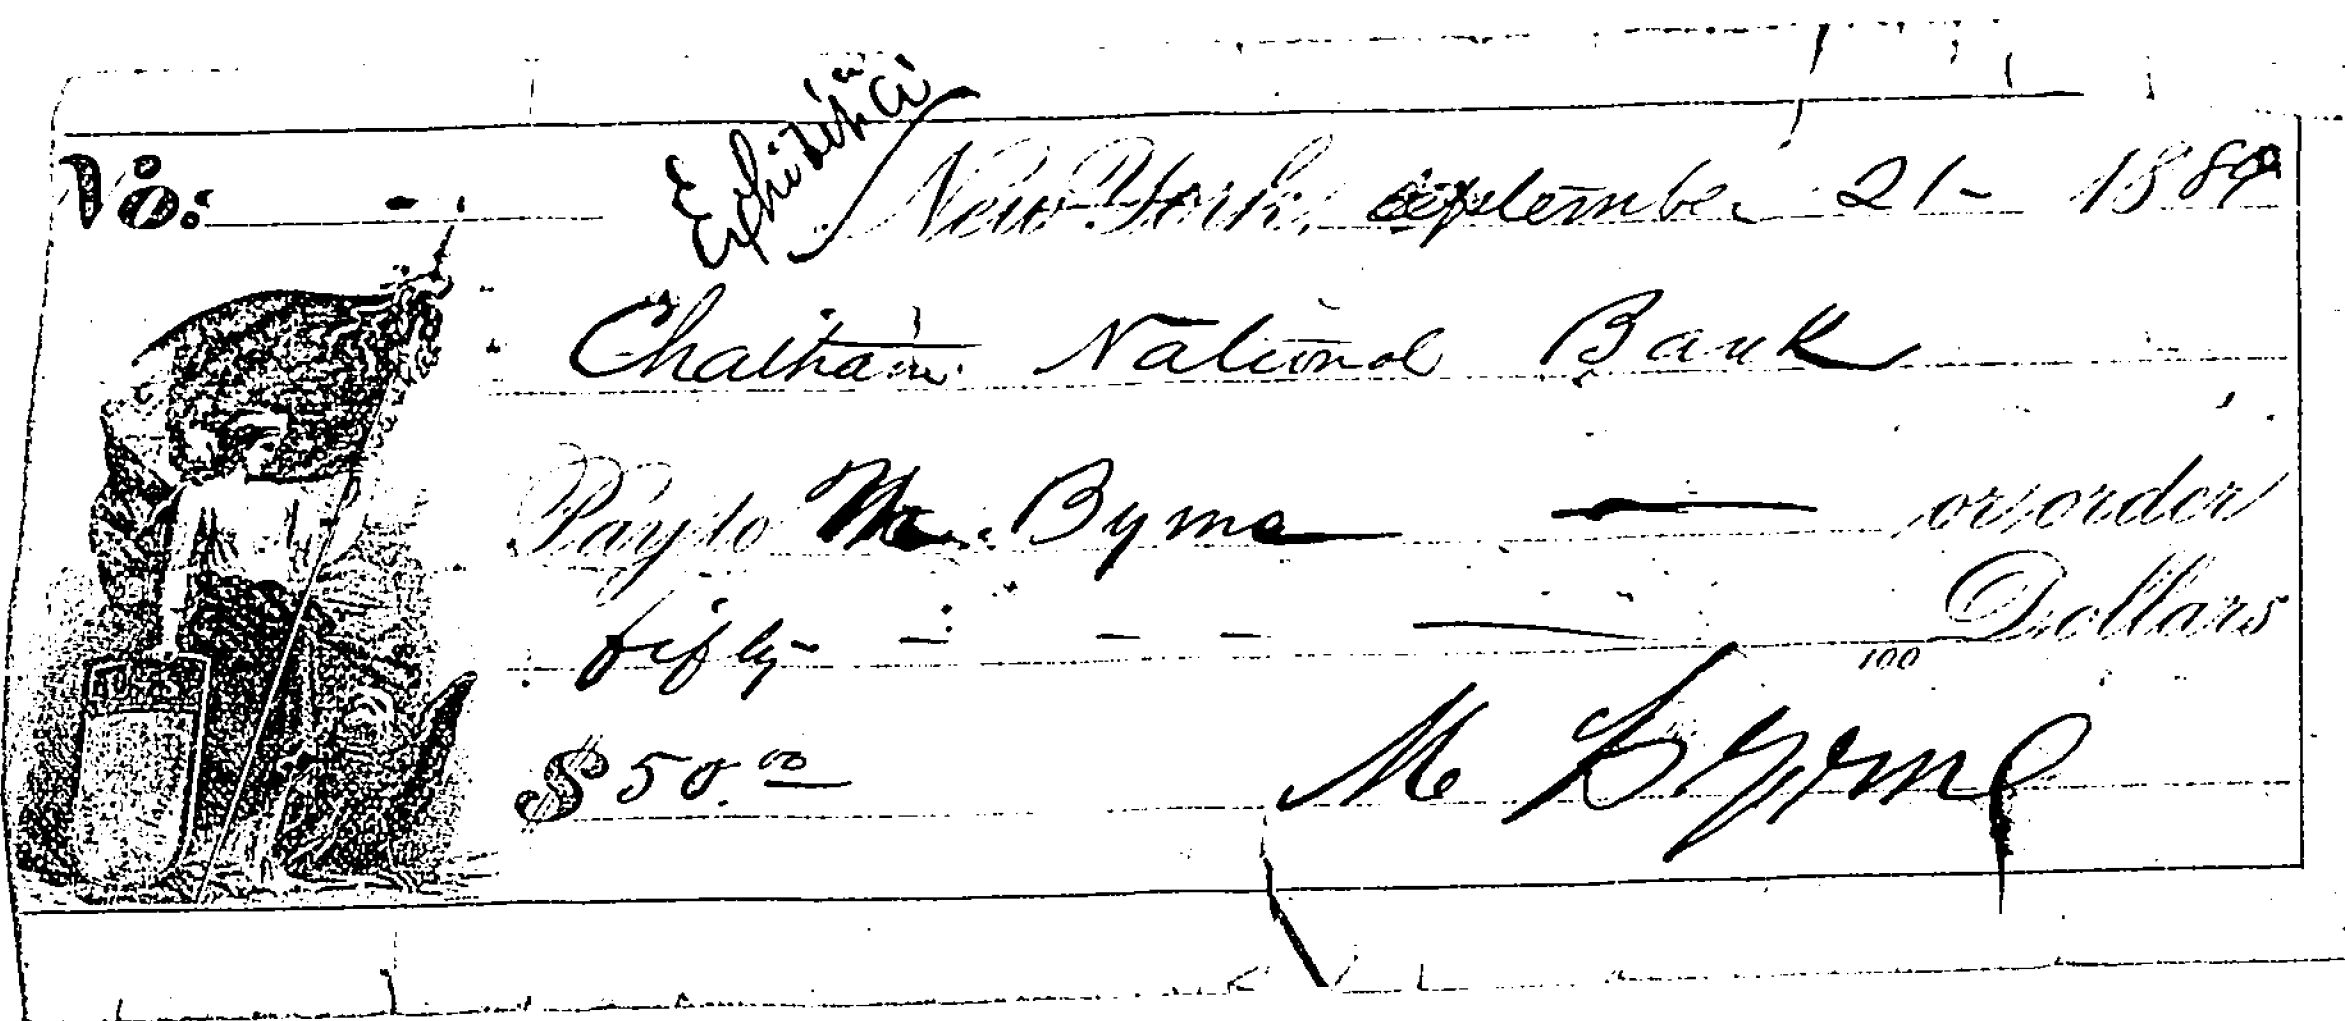 No: -
Exhibit "C"
New York, September 21- 1889
Chatham National Bank
Pay to Mr. Byrne or order
fifty - - - - Dollars
100
$ 50.00
M Byrne